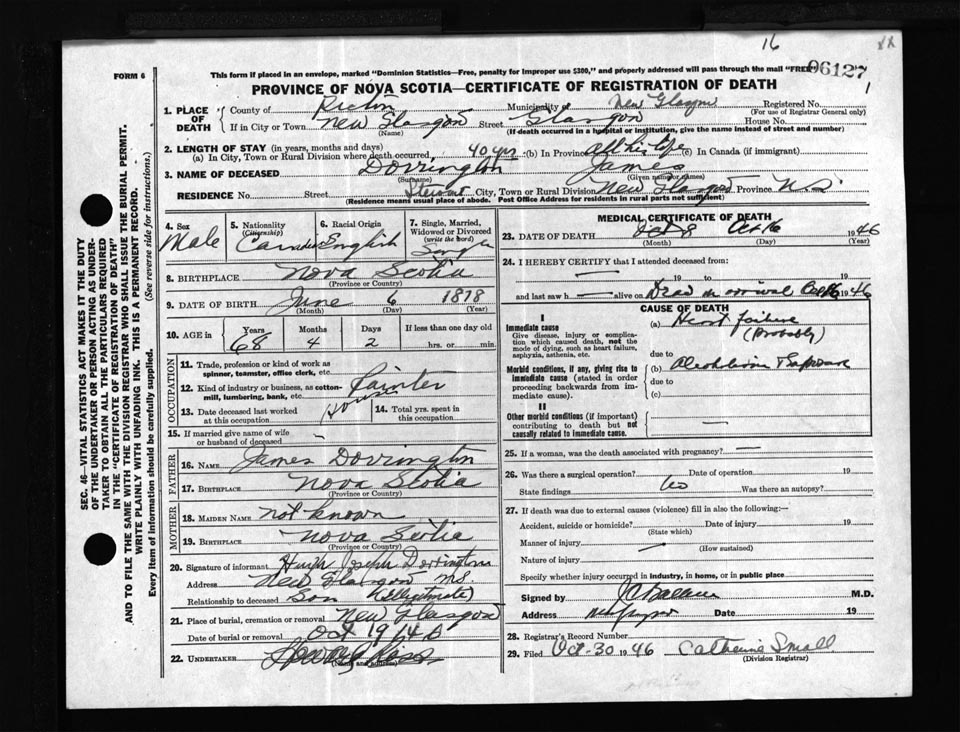 16
FORM 6
This form if placed in an envelope, marked "Dominion Statistics—Free, penalty for improper use $300," and properly addressed will pass through the mail "FREE"
06127
PROVINCE OF NOVA SCOTIA—CERTIFICATE OF REGISTRATION OF DEATH
1. PLACE OF DEATH
County of Pictou Municipality of New Glasgow Registered No.
(For use of Registrar General only)
If in City or Town New Glasgow Street Glasgow House No.
(Name) (If death occurred in a hospital or institution, give the name instead of street and number)
2. LENGTH OF STAY (in years, months and days)
(a) In City, Town or Rural Division where death occurred 40 yrs (b) In Province All his life (c) In Canada (if immigrant)
3. NAME OF DECEASED Dorrington James
(Surname) (Given name or names)
RESIDENCE No. Street Stewart City, Town or Rural Division New Glasgow Province N.S.
(Residence means usual place of abode. Post Office Address for residents in rural parts not sufficient)
SEC. 46—VITAL STATISTICS ACT MAKES IT THE DUTY
OF THE UNDERTAKER OR PERSON ACTING AS UNDER-
TAKER TO OBTAIN ALL THE PARTICULARS REQUIRED
IN THE "CERTIFICATE OF REGISTRATION OF DEATH"
AND TO FILE THE SAME WITH THE DIVISION REGISTRAR WHO SHALL ISSUE THE BURIAL PERMIT.
WRITE PLAINLY WITH UNFADING INK. THIS IS A PERMANENT RECORD.
Every item of information should be carefully supplied. (See reverse side for instructions.)
4. Sex
Male
5. Nationality
(Citizenship)
Canadian
6. Racial Origin
English
7. Single, Married,
Widowed or Divorced
(write the word)
Single
8. BIRTHPLACE Nova Scotia
(Province or Country)
9. DATE OF BIRTH June 6 1878
(Month) (Day) (Year)
10. AGE in Years Months Days If less than one day old
68 4 2 hrs. or min.
OCCUPATION
11. Trade, profession or kind of work as
spinner, teamster, office clerk, etc.
12. Kind of industry or business, as cotton-
mill, lumbering, bank, etc.
Painter
House
13. Date deceased last worked
at this occupation
14. Total yrs. spent in
this occupation
15. If married give name of wife
or husband of deceased
FATHER
16. NAME James Dorrington
17. BIRTHPLACE Nova Scotia
(Province or Country)
MOTHER
18. MAIDEN NAME not known
19. BIRTHPLACE Nova Scotia
(Province or Country)
20. Signature of informant Hugh Joseph Dorrington
Address New Glasgow N.S.
Relationship to deceased Son
21. Place of burial, cremation or removal New Glasgow
Date of burial or removal Oct 19
22. UNDERTAKER
(Name and address)
MEDICAL CERTIFICATE OF DEATH
23. DATE OF DEATH Oct 8 1946
(Month) (Day) (Year)
24. I HEREBY CERTIFY that I attended deceased from:
— 19 to 19
and last saw h — alive on Dead on arrival 1946
CAUSE OF DEATH
I
Immediate cause
Give disease, injury or complica-
tion which caused death, not the
mode of dying, such as heart failure,
asphyxia, asthenia, etc.
(a) Heart failure
(Probably)
due to
Morbid conditions, if any, giving rise to
immediate cause (stated in order
proceeding backwards from im-
mediate cause).
(b) Alcoholism & Exposure
due to
(c)
II
Other morbid conditions (if important)
contributing to death but not
causally related to immediate cause.
—
25. If a woman, was the death associated with pregnancy? —
26. Was there a surgical operation? Date of operation 19
State findings No Was there an autopsy?
27. If death was due to external causes (violence) fill in also the following:—
Accident, suicide or homicide? Date of injury 19
(State which)
Manner of injury —
(How sustained)
Nature of injury
Specify whether injury occurred in industry, in home, or in public place
Signed by M.D.
Address Date 19
28. Registrar's Record Number
29. Filed Oct-30 1946 Catherine Small
(Division Registrar)